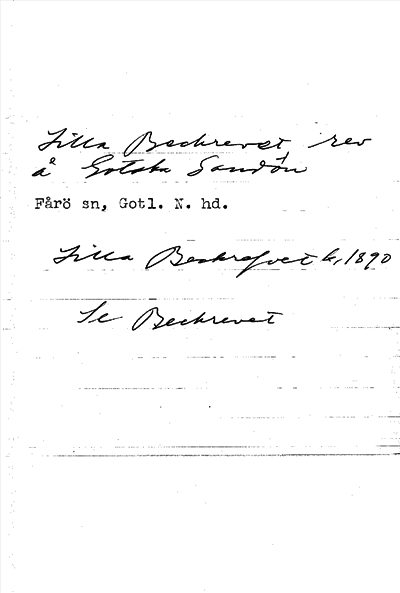 Lilla Beckrevet, rev
å Gotska Sandön
Fårö sn, Gotl. N. hd.
Lilla Beckrefvet k, 1890
Se Beckrevet